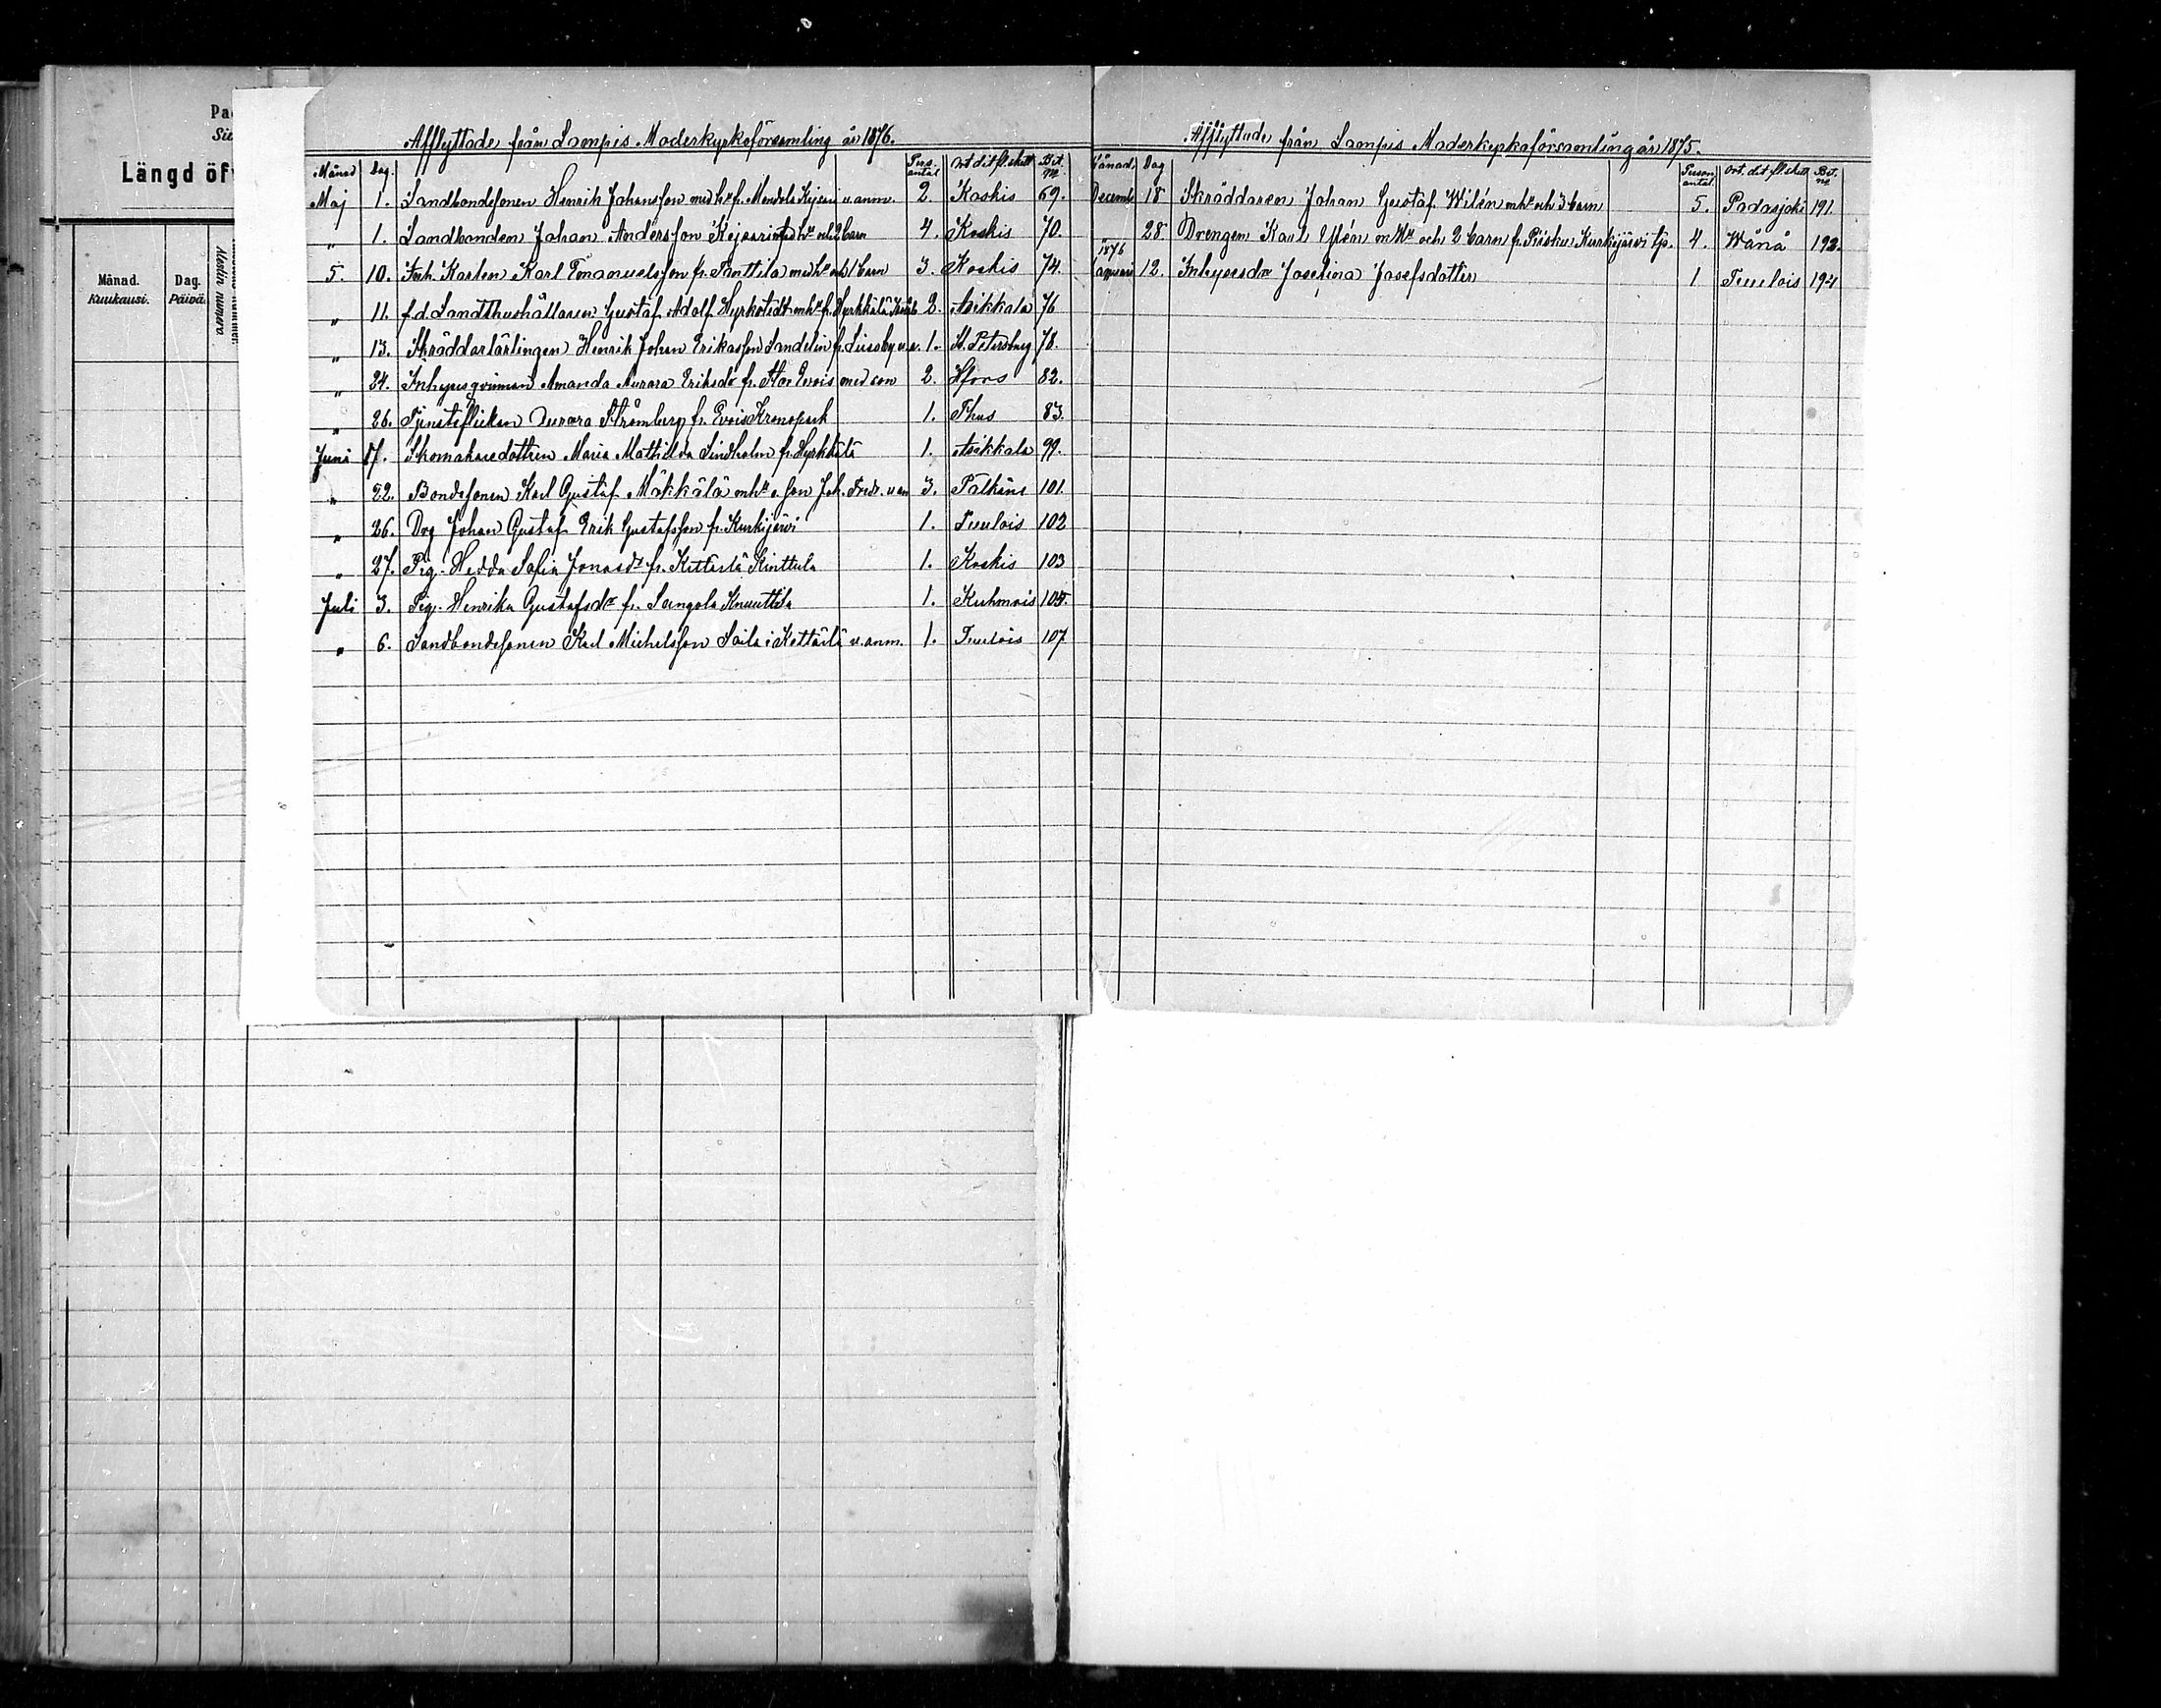 Pa
Si
Längd öf
Månad. Dag.
Kuukausi. Päivä.
Afflyttade från Lampis Moderkyrkoförsamling år 1876.
Månad Dag. Pers. antal Ort dit fl. skett Bet. №
Maj 1. Landbondesonen Henrik Johansson med h. fr. Mendola Kejsari u. anm. 2. Koskis 69.
" 1. Landbonden Johan Andersson Kejsari med h. och 2 barn 4. Koskis 70.
5. 10. Inh. Karlen Karl Emanuelsson fr. Panttila med h. och 1 barn 3. Koskis 74.
" 11. f.d. Landthushållaren Gustaf Adolf Hyrkstedt mh. fr. Hyrkkälä 2. Asikkala 76
" 13. Skräddarlärlingen Henrik Johan Eriksson Sandelin fr. 1. St. Petersburg 78.
" 24. Inhysesqvinnan Amanda Aurora Eriksdr fr. Stor Evois med son 2. Hfors 82.
" 26. Tjensteflickan Aurora Strömberg fr. Evois Kronopark 1. Thus 83.
Juni 17. Skomakaredottren Maria Mathilda Lindholm fr. Hyrkkälä 1. Asikkala 99.
" 22. Bondesonen Karl Gustaf Mäkkälä mh. o. son Joh. Fredr. u an 3. Pälkäne 101
" 26. Drg Johan Gustaf Erik Gustafsson fr. Kurkijärvi 1. Tuulois 102
" 27. Pig. Hedda Sofia Jonasdr fr. Kättärlä Kinttula 1. Koskis 103
Juli 3. Pig. Henrika Gustafsdr fr. Sangola Knuuttila 1. Kuhmois 105.
" 6. Landbondesonen Karl Michelsson Saila i Kettärlä u. anm. 1. Tuulois 107
Afflyttade från Lampis Moderkyrkoförsamling år 1875.
Månad. Dag Person antal. Ort. dit fl. skett Bet. №
Decemb 18 Skräddaren Johan Gustaf Wilén mh. och 3 barn 5. Padasjoki 191.
28. Drengen Karl Ylén m. h. och 2 barn fr. Kurkijärvi tp. 4. Wånå 192.
1876
12. Inhysesdr Josefina Josefsdotter 1 Tuulois 194